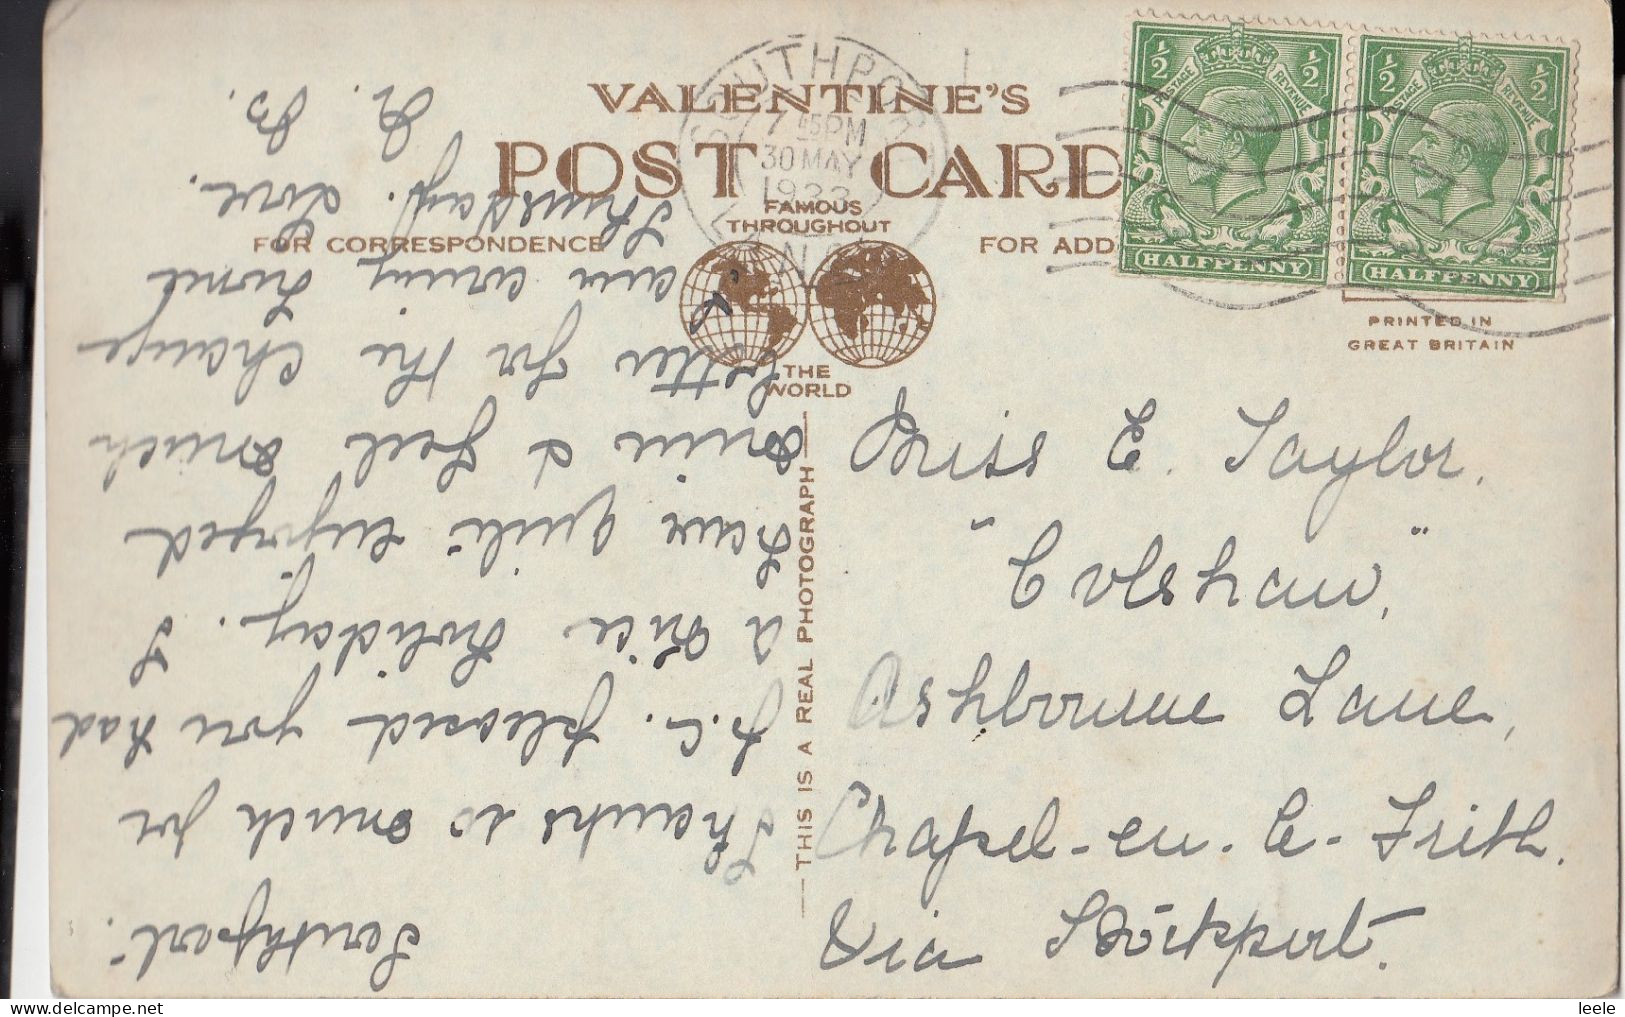 VALENTINE'S
POST CARD
FAMOUS
THROUGHOUT
THE
WORLD
FOR CORRESPONDENCE
FOR ADD
SOUTHPORT
7 15PM
30 MAY
POSTAGE REVENUE
½ ½
HALFPENNY
POSTAGE REVENUE
½ ½
HALFPENNY
PRINTED IN
GREAT BRITAIN
THIS IS A REAL PHOTOGRAPH
Miss E. Taylor,
"Colshaw",
Ashbourne Lane,
Chapel-en-le-Frith.
Via Stockport.
Southport.
Thanks so much for
p.c. pleased you had
a nice holiday. I
have quite enjoyed
mine & feel much
better for the change
am coming home
Thursday. Love.
leele